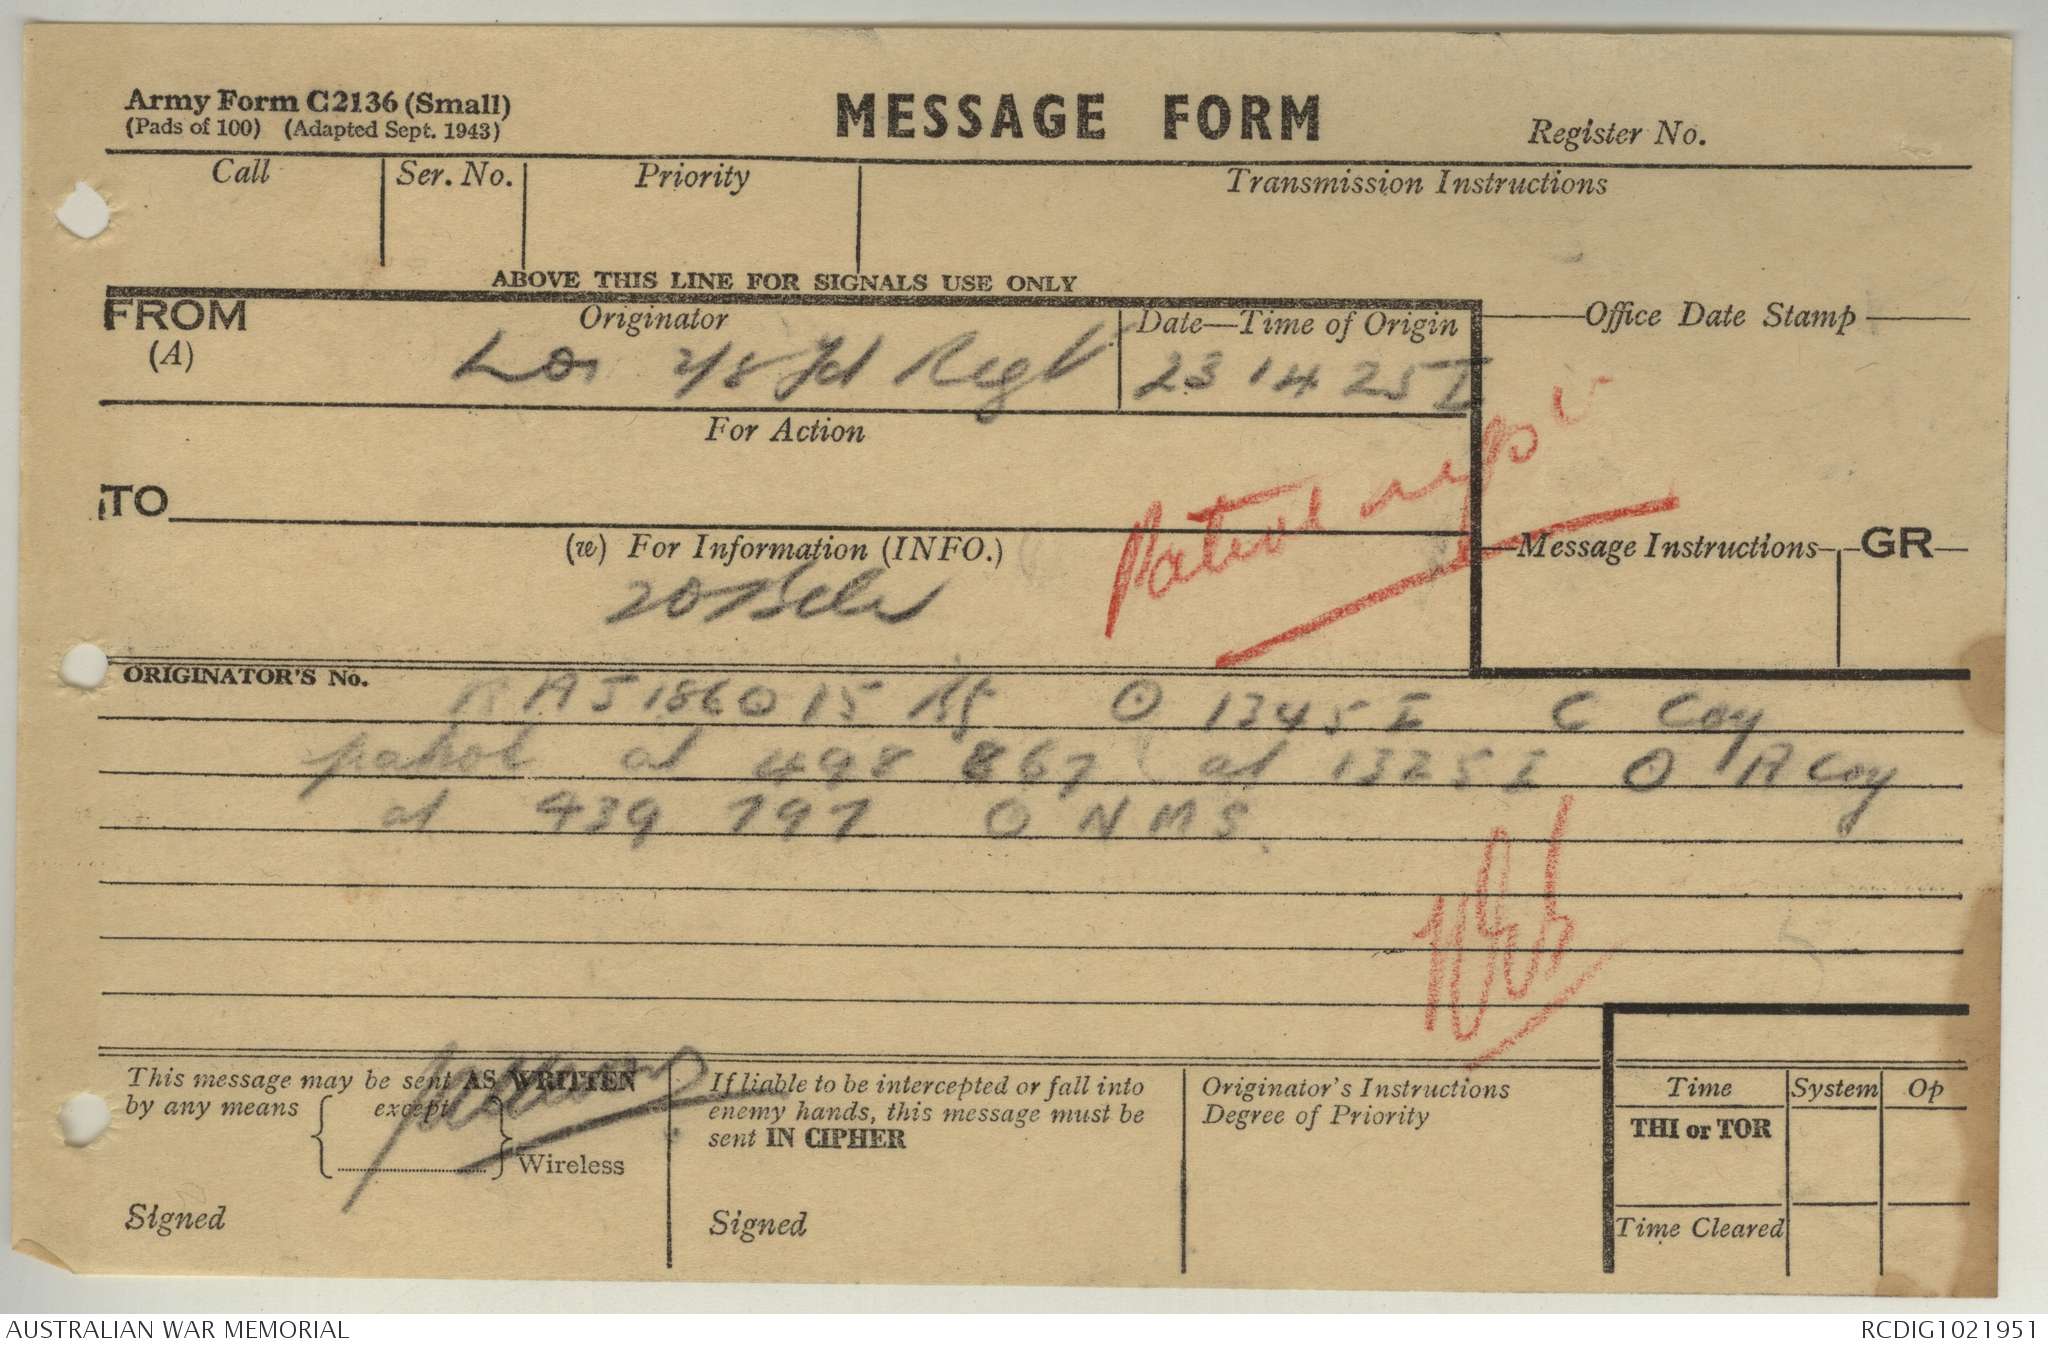 Army Form C2136 (Small)
(Pads of 100) (Adapted Sept. 1943)
MESSAGE FORM
Register No.
Call
Ser. No.
Priority
Transmission Instructions
ABOVE THIS LINE FOR SIGNALS USE ONLY
FROM
(A)
Originator
2/8 Fd Regt
Date—Time of Origin
23 1425 I
Office Date Stamp
For Action
TO
(w) For Information (INFO.)
20 Bde
Patrol
Message Instructions
GR
ORIGINATOR'S No.
O 1345 I C Coy
patrol at 498 867 at 1325 I O A Coy
at 939 797 O N M S
This message may be sent AS WRITTEN
by any means except
Wireless
Signed
If liable to be intercepted or fall into
enemy hands, this message must be
sent IN CIPHER
Signed
Originator's Instructions
Degree of Priority
Time
System
Op
THI or TOR
Time Cleared
AUSTRALIAN WAR MEMORIAL
RCDIG1021951